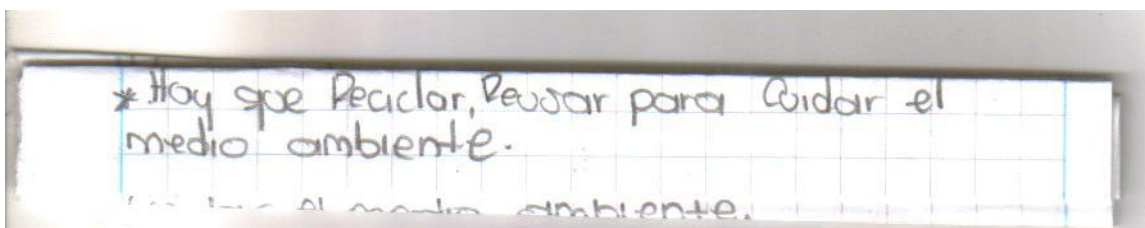 * Hay que Reciclar, Reusar para Cuidar el
medio ambiente.
el medio ambiente.